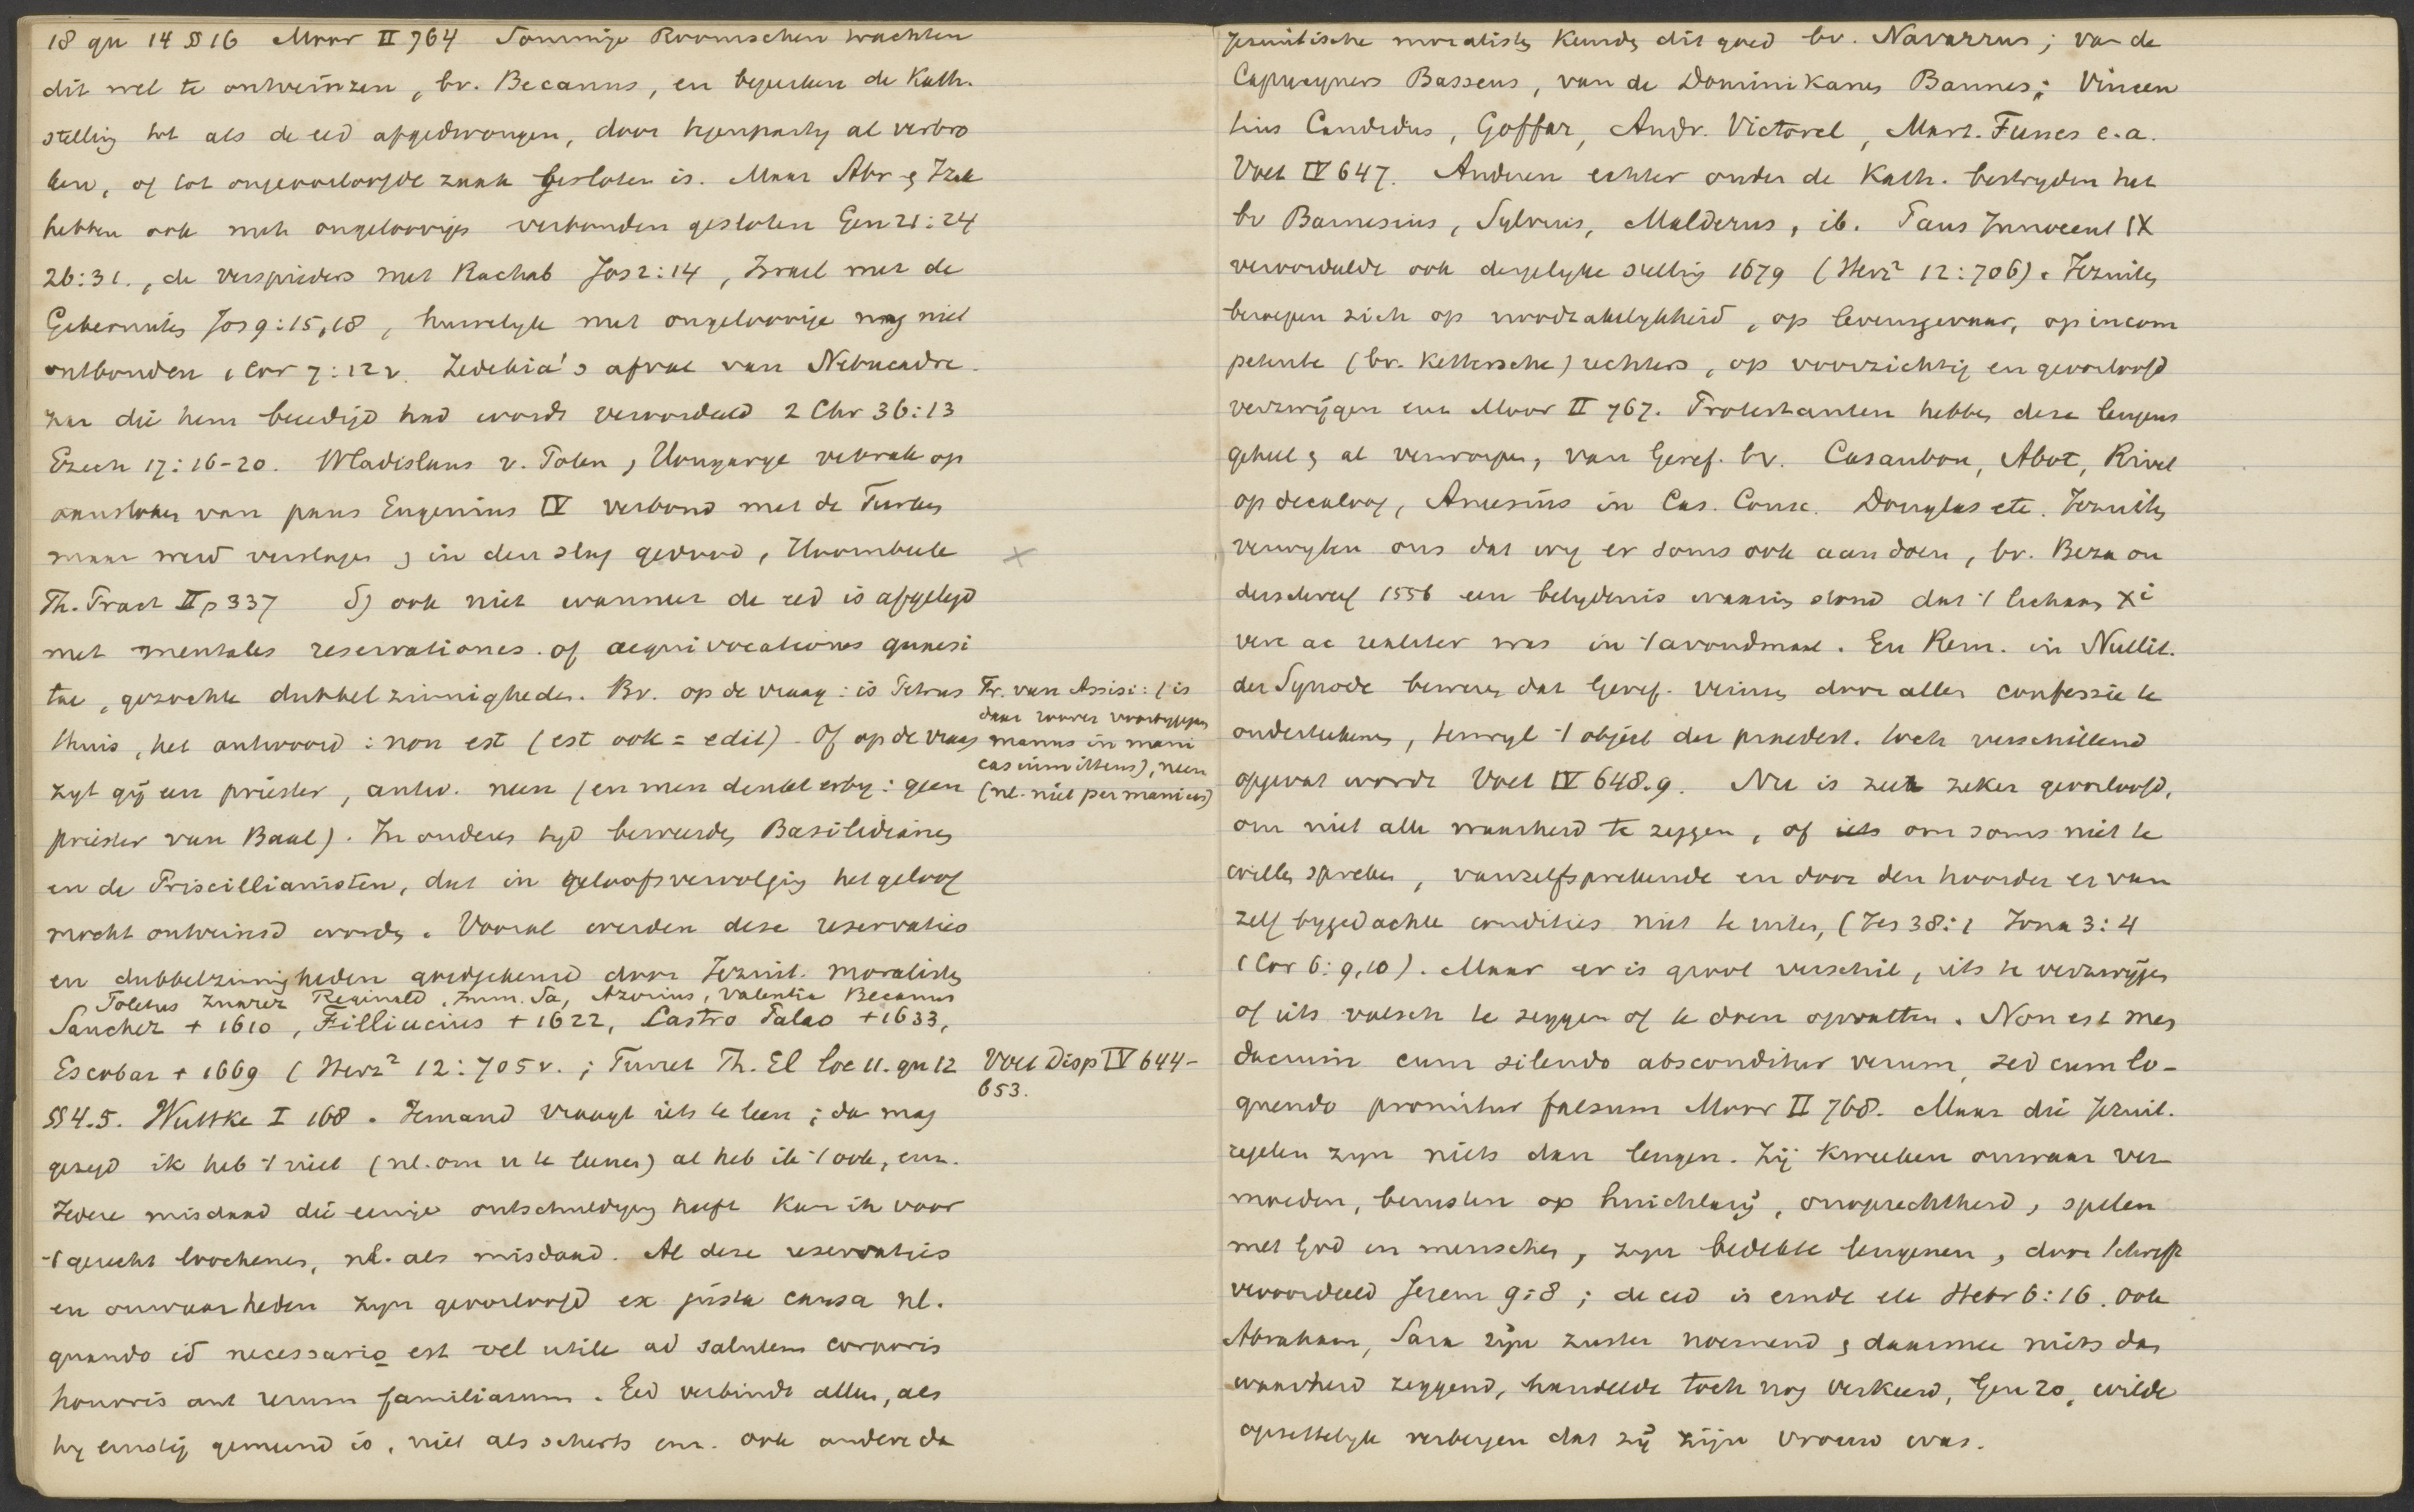 18 qu 14 §§ 16 Moor II 764 Sommige Roomschen trachten
dit wel te ontveinzen, bv. Becanus, en beperken de Kath.
stelling tot als de eed afgedwongen, door tegenparty al verbro
ken, of tot ongeoorloofde zaak gesloten is. Maar Abr & Izak
hebben ook met ongeloovigen verbonden gesloten Gen 21:24
26:31., de verspieders met Rachab Jos 2:14, Israel met de
Gibeonites Jos 9:15,18, huwelyk met ongeloovige mag niet
ontbonden 1 Cor 7:12v. Zedekia's afval van Nebucadre-
zar die hem beeedigd had wordt veroordeeld 2 Chr 36:13
Ezech 17:16-20. Wladislaus v. Polen, Hongarye verbrak op
aanstoken van paus Eugenius IV verbond met de Turken
maar werd verslagen & in den slag gedood, Hoornbeek
Th. Pract II p 337 δ) ook niet wanneer de eed is afgelegd
met mentales reservationes of aequivocationes quaesi
tae, gezochte dubbelzinnigheden. Bv. op de vraag: is Petrus
thuis, het antwoord: non est (est ook = edit). Of op de vraag
zyt gij een priester, antw. neen (en men denkt erby: geen
priester van Baal). In ouderen tyd beweerden Basilidianen
en de Priscillianisten, dat in geloofsvervolging het geloof
mocht ontveinsd worden. Vooral werden deze reservaties
en dubbelzinnigheden goedgekeurd door Jezuit. moralisten
Toletus Suarez Reginald, Emm. Sa, Azorius, Valentia Becanus
Sanchez + 1610, Filliucius + 1622, Castro Palao + 1633,
Escobar + 1669 (Herz² 12:705v.; Turret Th. El loc 11. qu 12
§§ 4.5. Wuttke I 168. Iemand vraagt iets te leen; dan mag
gezegd ik heb 't niet (nl. om u te leenen) al heb ik 't ook, enz.
Iedere misdaad die eenige ontschuldiging heeft kan ik voor
't gerecht loochenen, nl. als misdaad. Al deze reservaties
en onwaarheden zyn geoorloofd ex justa causa nl.
quando id necessario est vel utile ad salutem corporis
honoris aut rerum familiarum. Eed verbindt allen, als
hy ernstig gemeend is, niet als scherts enz. ook andere da
Fr. van Assisi: (is
daar roover voorbygegaan
manus in mani
cas immittens), neen
(nl. niet per manicas)
Voet Disp IV 644-
653.
jezuitische moralisten keurden dit goed bv. Navarrus; van de
Capucyners Basseus, van de Dominikaners Bannes; Vincen
tius Candidus, Goffar, Andr. Victorel, Mart. Funes e.a.
Voet IV 647. Anderen echter onder de Kath. bestryden het
bv Barnesius, Sylvius, Malderus, ib. Paus Innocent IX
veroordeelde ook dergelyke stelling 1679 (Herz² 12:706). Jezuiten
beroepen zich op noodzakelykheid, op levensgevaar, op incom
petente (bv. kettersche) rechters, op voorzichtig en geoorloofd
verzwijgen enz Moor II 767. Protestanten hebben deze leugens
geheel & al verworpen, van Geref. bv. Casaubon, Abot, Rivet
op decaloog, Amesius in Cas. Consc. Douglas etc. Jezuiten
verwyten ons dat wy er soms ook aan doen, bv. Beza on
derschreef 1556 een belydenis waarin stond dat 't lichaam Xi
vere ac realiter was in 't avondmaal. En Rem. in Nullit.
der Synode beweren dat Geref. veinsen door allen confessie te
onderteekenen, terwyl 't object der praedest. toch verschillend
opgevat wordt Voet IV 648.9. Nu is zeer zeker geoorloofd,
om niet alle waarheid te zeggen, of iets om soms niet te
willen spreken, vanzelfsprekende en door den hoorder er van
zelf bygedachte condities niet te uiten, (Jes 38:1 Jona 3:4
1 Cor 6:9,10). Maar er is groot verschil, iets te verzwijgen
of iets valsch te zeggen of te doen opvatten. Non est men
dacium cum silendo absconditur verum, sed cum lo-
quendo promitur falsum Moor II 768. Maar die Jezuit.
regelen zyn niets dan leugen. Zij kweeken onwaar ver
moeden, berusten op huichlarij, onoprechtheid, spelen
met God en menschen, zyn bedekte leugenen, door Schrift
veroordeeld Jerem 9:8; de eed is einde etc Hebr 6:16. Ook
Abraham, Sara zijn zuster noemend & daarmee niets dan
waarheid zeggend, handelde toch nog verkeerd, Gen 20, wilde
opzettelyk verbergen dat zij zijn vrouw was.